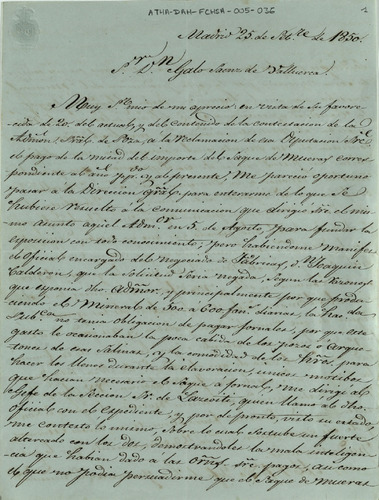 ATHA-DAH-FCHSA-005-036
1
Madrid 25 de Sbre de 1850.
Sr. Dn. Galo Saenz de Valluerca.
Muy Sr. mio de mi aprecio en vista de su favore-
cida de 20. del actual, y del contenido de la contestacion de la
Admon. de Poza, a la reclamacion de esa Diputacion Sre.
el pago de la mitad del importe del Saque de Mueras corres-
pondiente al y de presente; Me parecio oportuno
pasar a la Direccion Gral. para enterarme de lo que se
hubiese resuelto a la Comunicacion que dirigio Sre. el mis-
mo asunto aquel Admor. en 5. de Agosto, para fundar la
esposicion con todo conocimiento; pero habiendome manifes-
el oficial encargado del negociado de Fabricas, Dn. Joaquin
Calderon, que la Solicitud seria negada, segun las
que esponia dho. Admor. y principalmente por que produ-
ciendo el Mineral de 500 a 600 fan. diarias, la Haz.da
Pubca. no tenia obligacion de pagar jornales, por que este
gasto le ocasionaban la poca cabida de los pozos o arque-
tones de esas Salinas, y la comodidad de los
hacer los llenos durante la elavoracion, unicos motibos
que hacian necesario el saque a jornal, me dirigi al
Jefe de la Seccion Sr. de quien llamo al dho.
Oficial con el Espediente, y por de pronto, visto su estado,
me contesto lo mismo, Sobre lo cual Sostube un fuerte
altercado con los dos, demostrandoles la mala inteligen-
cia que habian dado a las Ordns. sre. pago; asi como
el que no podia persuadirme que el Saque de Mueras